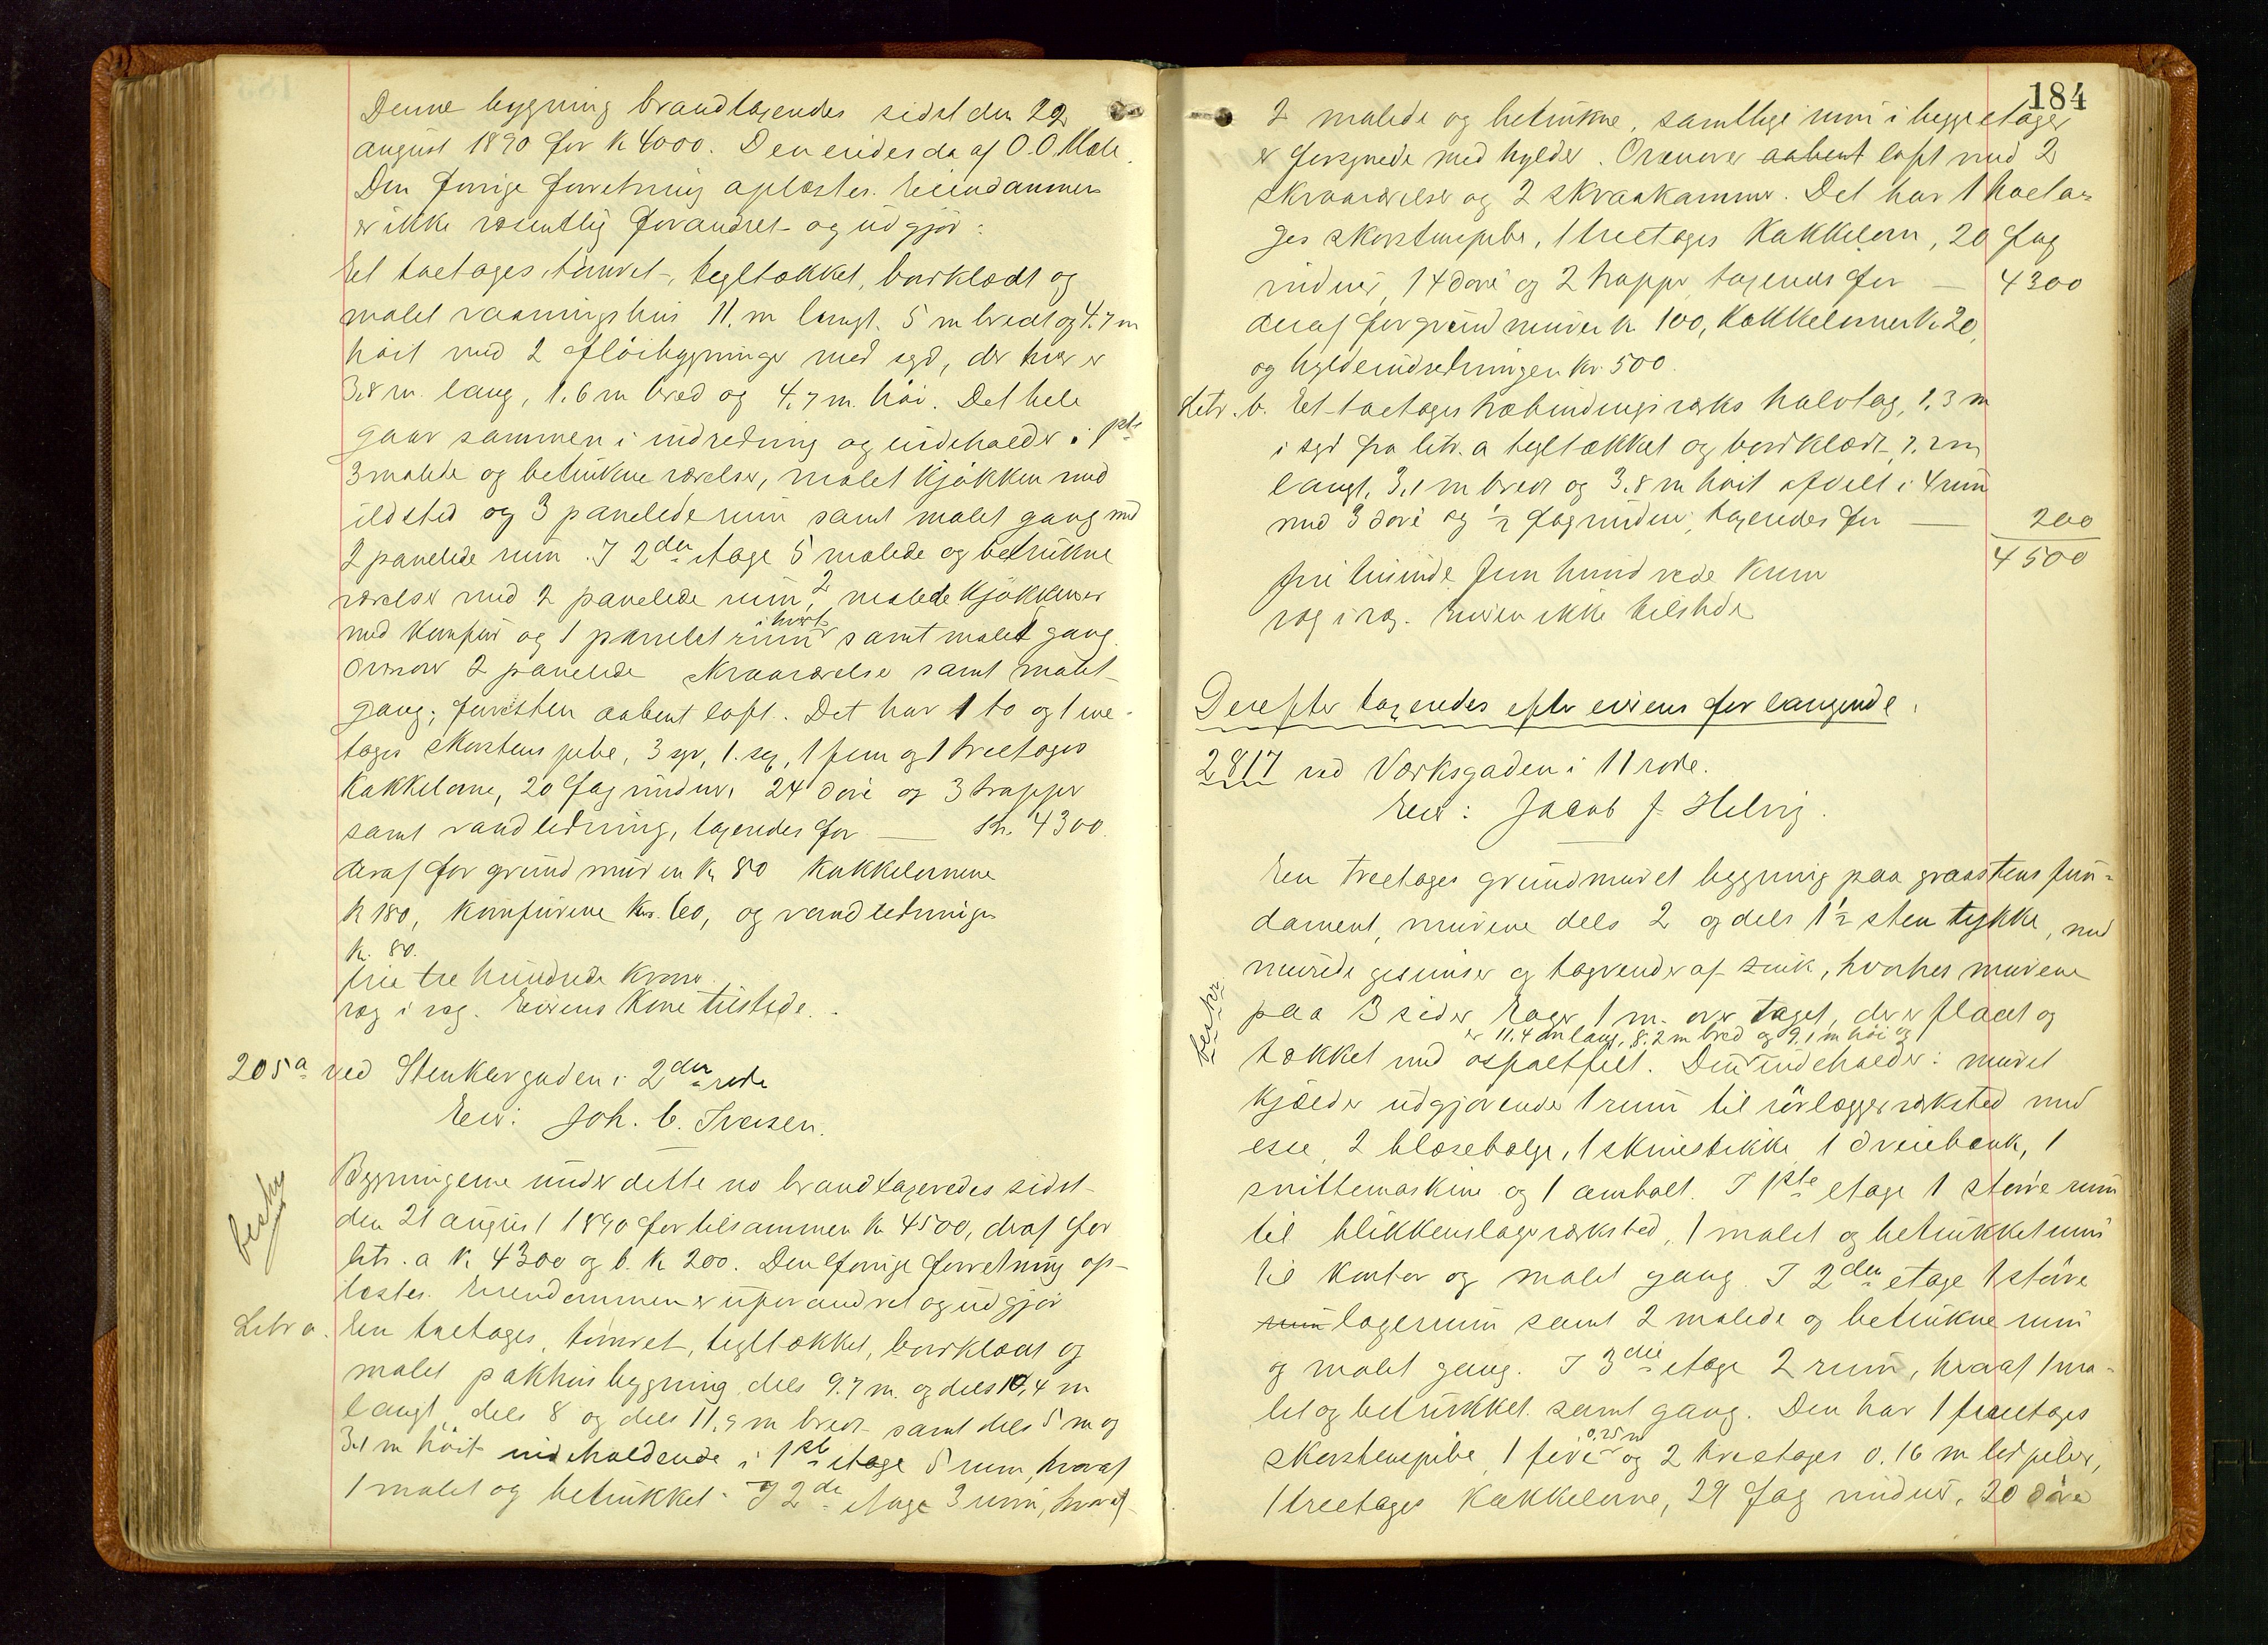 Denne bygning brandtaxeredes sidst den 22
august 1890 for k 4000. Den eiedes da af O. O. Mæle.
Den forrige forretning oplæstes. Eiendommen
er ikke væsentlig forandret og udgjør:
Et toetages, tømret, tegltækket, bordklædt og
malet vaaningshus 11. m langt. 5 m bredt og 4.7 m
høit med 2 fløibygninger mod syd, der hver er
3,8 m. lang, 1.6 m bred og 4,7 m. høi. Det hele
gaar sammen i indredning og indeholder i 1ste
3 malede og betrukne værelser, malet kjøkken med
ildsted og 3 panelede rum samt malet gang med
2 panelede rum. I 2den etage 5 malede og betrukne
værelser med 2 panelede rum, 2 malede kjøkkener
med komfur og 1 panelet rum i hvert samt malet gang.
Ovenover 2 panelede skraaværelse samt malet
gang; forresten aabent loft. Det har 1 to og 1 tre-
tages skorstenspibe, 3 syv, 1. sex, 1 fem og 1 treetages
kakkelovne, 20 fag vinduer 24 døre og 3 trapper
samt vandledning, taxeredes for — Kr. 4300.
deraf for grundmuren k 80 kakkelovnene
k 180, komfurene kr. 60, og vandledningen
k. 80.
firetre hundrede kroner
rag i rag. Eierens kone tilstede.
205a ved Stenkargaden i 2den rode
Eier: Joh. C. Iversen.
besky
Bygningerne under dette no brandtaxeredes sidst
den 21 august 1890 for tilsammen k 4500, deraf for
litr. a k 4300 og b. k 200. Den forrige forretning op-
læstes. Eiendommen er uforandret og udgjør
Litr a. En toetages, tømret, tegltækket, bordklædt og
malet pakhusbygning, dels 9.7 m. og dels 10,4 m
langt, dels 8 og dels 11,9 m bredt samt dels 5 m og
3.1 m høit indeholdende i 1ste etage 5 rum, hvoraf
1 malet og betrukket. I 2de etage 3 rum, hvoraf
184
2 malede og betrukne, samtlige rum i begge etager
er forsynede med hylder. Ovenover aabent loft med 2
skraaværelser og 2 skraakammer. Det har 1 toeta-
ges skorstenspibe, 1 treetages kakkelovn, 20 fag
vinduer, 14 døre og 2 trapper, taxeredes for — 4300
deraf for grundmuren k 100, kakkelovnen k. 20,
og hyldeindretningen kr. 500.
Litr. b. Et toetages træbindingsværks halvtag, 1,3 m
i syd fra litr. a tegltækket og bordklædt, 7.2 m
langt, 3,1 m bredt og 3,8 m høit afdelt i 4 rum
med 3 døre og 1/2 fag vinduer, taxeredes for — 200
4500
fire tusinde fem hundrede kroner
rag i rag. Eieren ikke tilstede
Derefter taxeredes efter eierens forlangende.
2817 ved Værksgaden i 11 rode.
Eier: Jacob J. Helvig.
beskr
En treetages grundmuret bygning paa graastens fun-
dament, murene dels 2 og dels 1 1/2 sten tykke, med
murede gesimser og tagrender af zink, hvorhos murene
paa 3 sider rager 1 m. over taget, der er fladt og
er 11.4 m lang, 8.2 m bred og 9.1 m høi og
tækket med asfaltfilt. Den indeholder: muret
kjælder udgjørende 1 rum til rørlæggerværksted med
esse, 2 blæsebælge, 1 skruestikke 1 dreiebænk, 1
snittemaskine og 1 ambolt. I 1ste etage 1 større rum
til blikkenslagerværksted, 1 malet og betrukket rum
til kontor og malet gang. I 2den etage 1 større
rum lagerrum samt 2 malede og betrukne rum
og malet gang. I 3die etage 2 rum, hvoraf 1 ma-
let og betrukket. samt gang. Den har 1 firetages
skorstenspibe, 1 fire 0.25 m og 2 treetages 0.16 m ler piber,
1 treetages kakkelovne, 29 fag vinduer, 20 døre